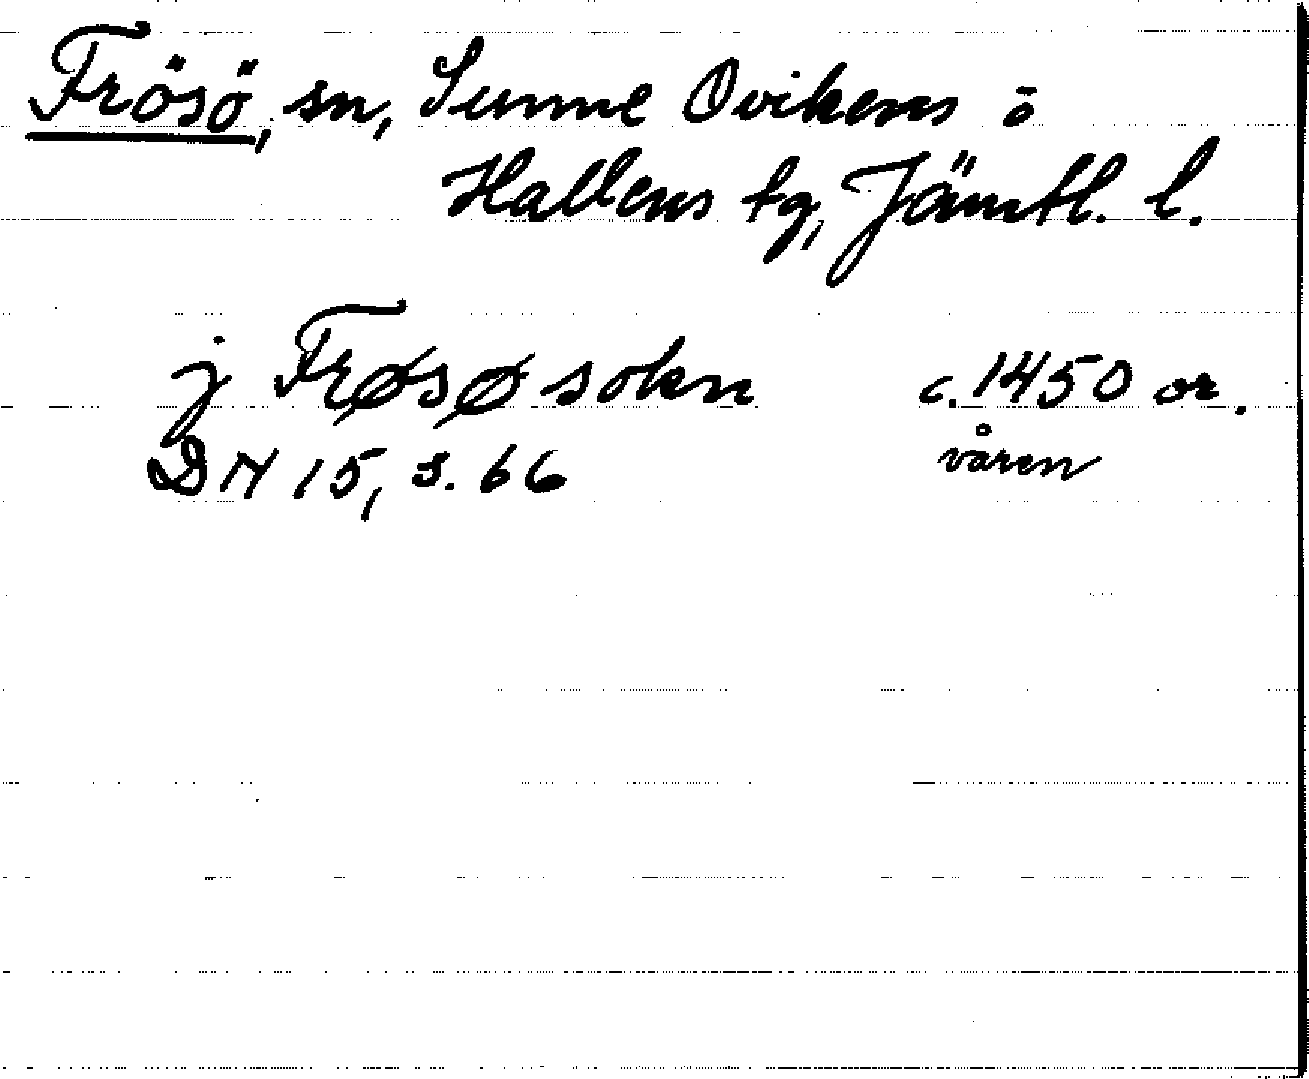 Frösö, sn, Sunne Ovikens o
Hallens tg, Jämtl. l.
j Frøsø sokn c. 1450 or.
våren
DN 15, s. 66